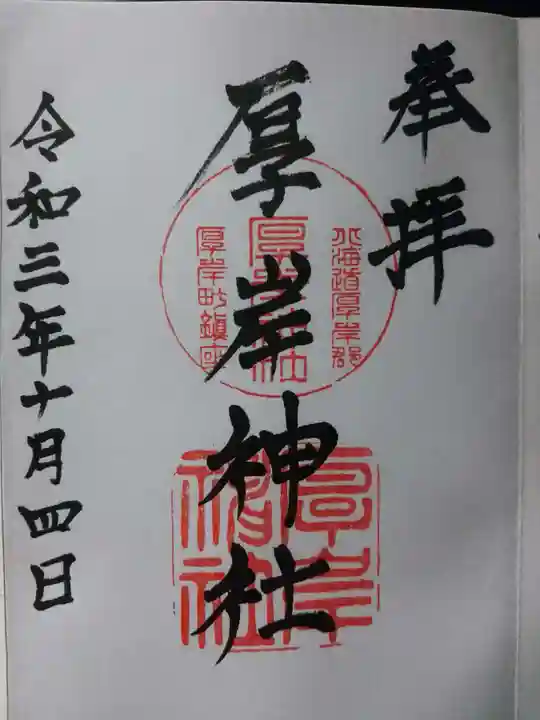 奉拝
厚岸神社
北海道厚岸郡
厚岸神社
厚岸町鎮座
厚岸
神社
令和三年十月四日